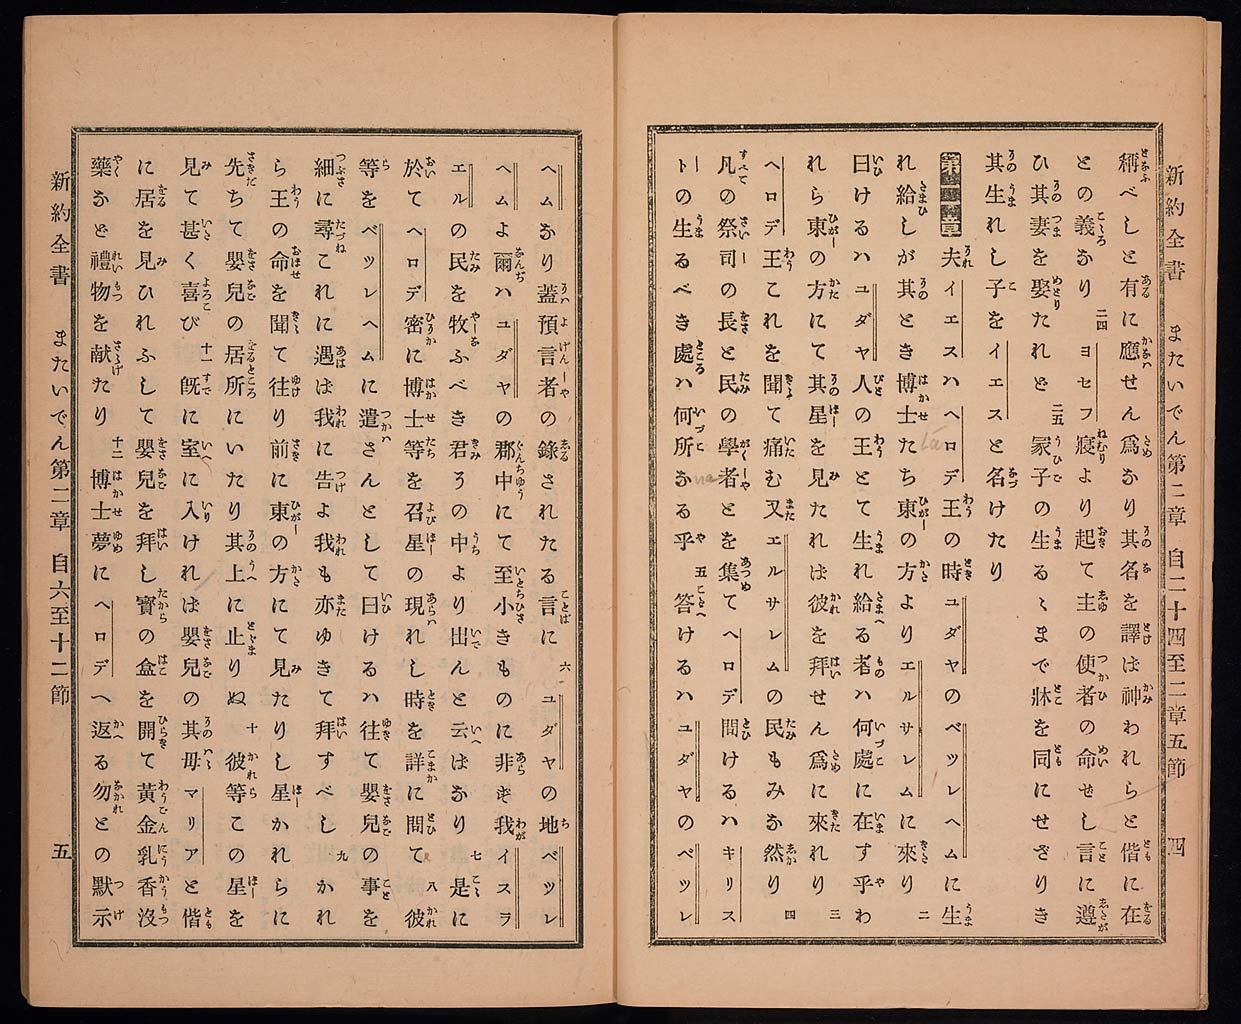 新約全書 またいでん第二章 自二十四至二章五節 四
稱べしと有に應せん爲なり其名を譯は神われらと偕に在
との義なり 二四 ヨセフ寢より起て主の使者の命せし言に遵
ひ其妻を娶たれど 二五 冢子の生るゝまで牀を同にせざりき
其生れし子をイエスと名けたり
第二章 夫イエスハヘロデ王の時ユダヤのベツレヘムに生
れ給しが其とき博士たち東の方よりエルサレムに來り 二
曰けるハユダヤ人の王とて生れ給る者ハ何處に在す乎わ
れら東の方にて其星を見たれは彼を拜せん爲に來れり 三
ヘロデ王これを聞て痛む又エルサレムの民もみな然り 四
凡の祭司の長と民の學者とを集てヘロデ問けるハキリス
トの生るべき處ハ何所なる乎 五 答けるハユダヤのベツレ
ヘムなり蓋預言者の錄されたる言に 六 ユダヤの地ベツレ
ヘムよ爾ハユダヤの郡中にて至小きものに非ず我イスラ
エルの民を牧ふべき君その中より出んと云ばなり 七 是に
於てヘロデ密に博士等を召星の現れし時を詳に問て 八 彼
等をベツレヘムに遣さんとして曰けるハ往て嬰兒の事を
細に尋これに遇は我に告よ我も亦ゆきて拜すべし 九 かれ
ら王の命を聞て往り前に東の方にて見たりし星かれらに
先ちて嬰兒の居所にいたり其上に止りぬ 十 彼等この星を
見て甚く喜び 十一 旣に室に入ければ嬰兒の其母マリアと偕
に居を見ひれふして嬰兒を拜し寶の盒を開て黃金乳香沒
藥など禮物を献たり 十二 博士夢にヘロデへ返る勿との默示
新約全書 またいでん第二章 自六至十二節 五